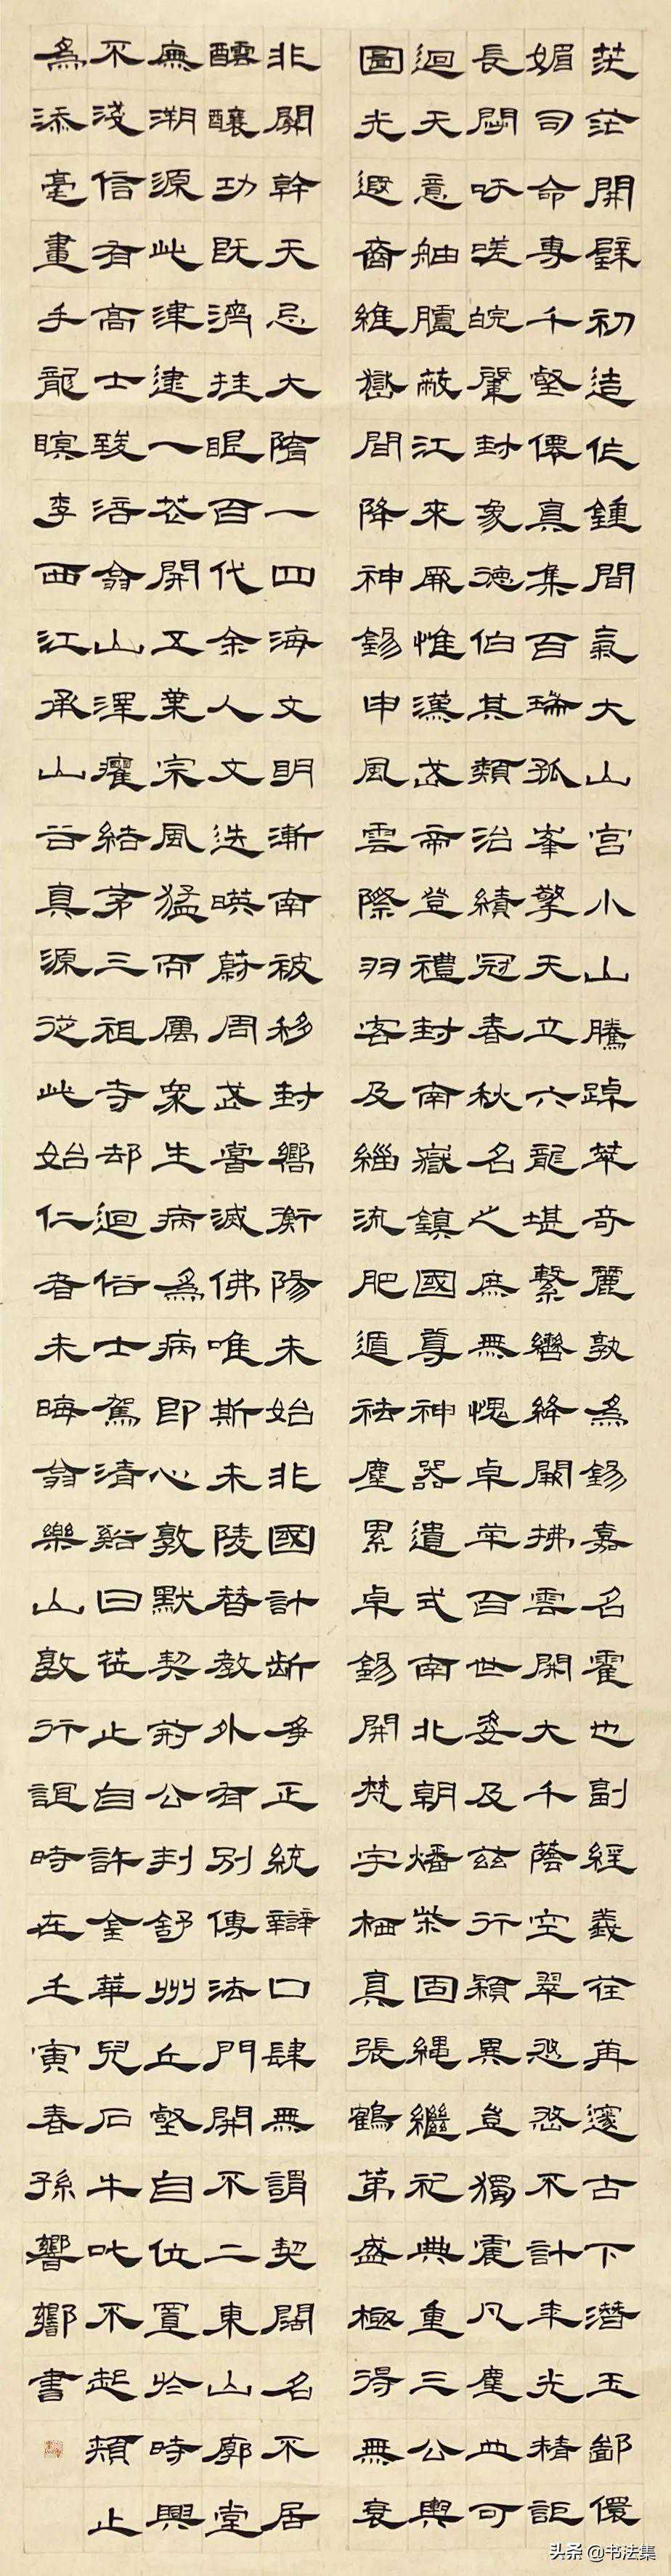 茫茫開闢初造化鍾間氣大山宮小山騰踔萃奇麗孰為錫嘉名霍也副經義荏苒邃古下潛玉鄙儇
媚司命專千壑僊真集百瑞孤峯擎天立六龍堪繫轡絳闕拂雲開大千蔭空翠悠悠不計年光精詎
長閟吁嗟皖肇封象德伯其類治績冠春秋名之庶無愧卓犖百世姿及茲行穎異豈獨震凡塵血可
迴天意舳艫蔽江來厥惟漢武帝登禮封南嶽鎮國尊神器遺式南北朝燔柴固繩繼祀典重三公輿
圖光遐裔維嶽間降神錫申風雲際羽客及緇流肥遁袪塵累卓錫開梵宇栖真張鶴第盛極得無衰
非關幹天忌大隋一四海文明漸南被移封嚮衡陽未始非國計斷爭正統辯口肆無謂契闊名不居
醞釀功既濟挂眼百代余人文迭暎蔚周武嘗滅佛唯斯未陵替教外有別傳法門開不二東山廓堂
廡溯源此津逮一花開五葉宗風猛而厲眾生病為病即心敦默契荊公判舒州丘壑自位置於時興
不淺信有高士致涪翁山澤癯結茅三祖寺却迴俗士駕清谿曰莅止自許金華兒石牛叱不起類止
為添毫畫手龍瞑李西江承山谷真源從此始仁者未晦翁樂山敦行誼時在壬寅春孫響鄉書
头条 @书法集